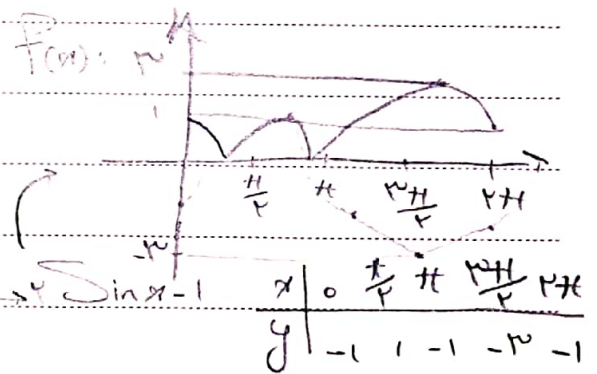 f(x):
۳
۱
π/۲ π ۳π/۲ ۲π
-۳
۲ Sin x - 1
x | 0 π/۲ π ۳π/۲ ۲π
y | -1 1 -1 -۳ -1